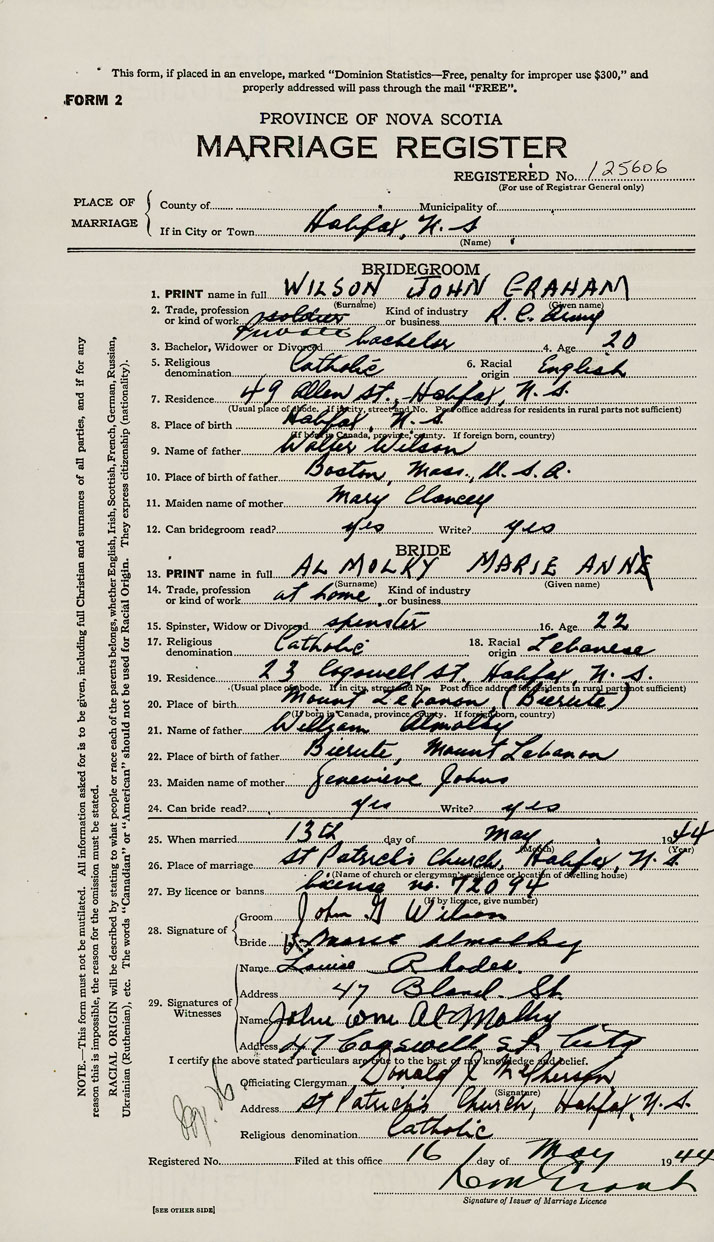 This form, if placed in an envelope, marked "Dominion Statistics—Free, penalty for improper use $300," and
properly addressed will pass through the mail "FREE".
FORM 2
PROVINCE OF NOVA SCOTIA
MARRIAGE REGISTER
REGISTERED No. 125606
(For use of Registrar General only)
PLACE OF MARRIAGE
County of Municipality of
If in City or Town Halifax, N. S
(Name)
BRIDEGROOM
1. PRINT name in full WILSON JOHN GRAHAM
(Surname) (Given name)
2. Trade, profession or kind of work soldier private Kind of industry or business R. C. Army
3. Bachelor, Widower or Divorced bachelor 4. Age 20
5. Religious denomination Catholic 6. Racial origin English
7. Residence 49 Allen St., Halifax, N. S.
(Usual place of abode. If in city, street and No. Post office address for residents in rural parts not sufficient)
8. Place of birth Halifax, N. S.
(If born in Canada, province, county. If foreign born, country)
9. Name of father Walter Wilson
10. Place of birth of father Boston, Mass., U. S. A.
11. Maiden name of mother Mary Clancey
12. Can bridegroom read? yes Write? yes
BRIDE
13. PRINT name in full AL MOLKY MARIE ANNE
(Surname) (Given name)
14. Trade, profession or kind of work at home Kind of industry or business
15. Spinster, Widow or Divorced spenster 16. Age 22
17. Religious denomination Catholic 18. Racial origin Lebanese
19. Residence 23 Cogswell St., Halifax, N. S.
(Usual place of abode. If in city, street and No. Post office address for residents in rural parts not sufficient)
20. Place of birth Mount Lebanon (Bierute)
(If born in Canada, province, county. If foreign born, country)
21. Name of father William Almolky
22. Place of birth of father Bierute, Mount Lebanon
23. Maiden name of mother Genevieve Johns
24. Can bride read? yes Write? yes
25. When married 13th day of May 1944
(Month) (Year)
26. Place of marriage St Patrick's Church, Halifax, N. S.
(Name of church or clergyman's residence or location of dwelling house)
27. By licence or banns license no. 72094
(If by licence, give number)
28. Signature of
Groom John G Wilson
Bride Marie Almolky
29. Signatures of Witnesses
Name Louise Rhodes.
Address 47 Bland St.
Name John Wm Al Molky
Address 47 Cogswell St. City
I certify the above stated particulars are true to the best of my knowledge and belief.
Officiating Clergyman Donald J McPherson
(Signature)
Address St Patrick's Church, Halifax, N. S.
Religious denomination Catholic
Registered No. Filed at this office 16 day of May 1944
Signature of Issuer of Marriage Licence
[SEE OTHER SIDE]
NOTE.—This form must not be mutilated. All information asked for is to be given, including full Christian and surnames of all parties, and if for any
reason this is impossible, the reason for the omission must be stated.
RACIAL ORIGIN will be described by stating to what people or race each of the parents belongs, whether English, Irish, Scottish, French, German, Russian,
Ukrainian (Ruthenian), etc. The words "Canadian" or "American" should not be used for Racial Origin. They express citizenship (nationality).